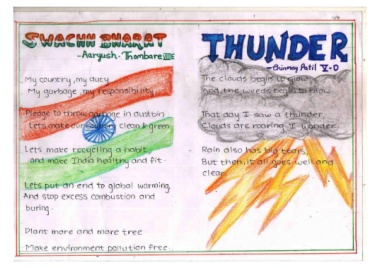 SWACHH BHARAT
-Aaryush. Thombare VIII E
My country, my duty
My garbage, my responsibility.
Pledge to throw garbage in dustbin
Lets make our clean & green
Lets make recycling a habit
and make India healthy and fit.
Lets put an end to global warming
And stop excess combustion and
buring.
Plant more and more tree
Make environment pollution free.
THUNDER
-Chinmay Patil V-D
The clouds begin to glow
And the weeds begin to blow
That day I saw a thunder
Clouds are roaring I wonder
Rain also has big tears,
But then it all goes well and
clear